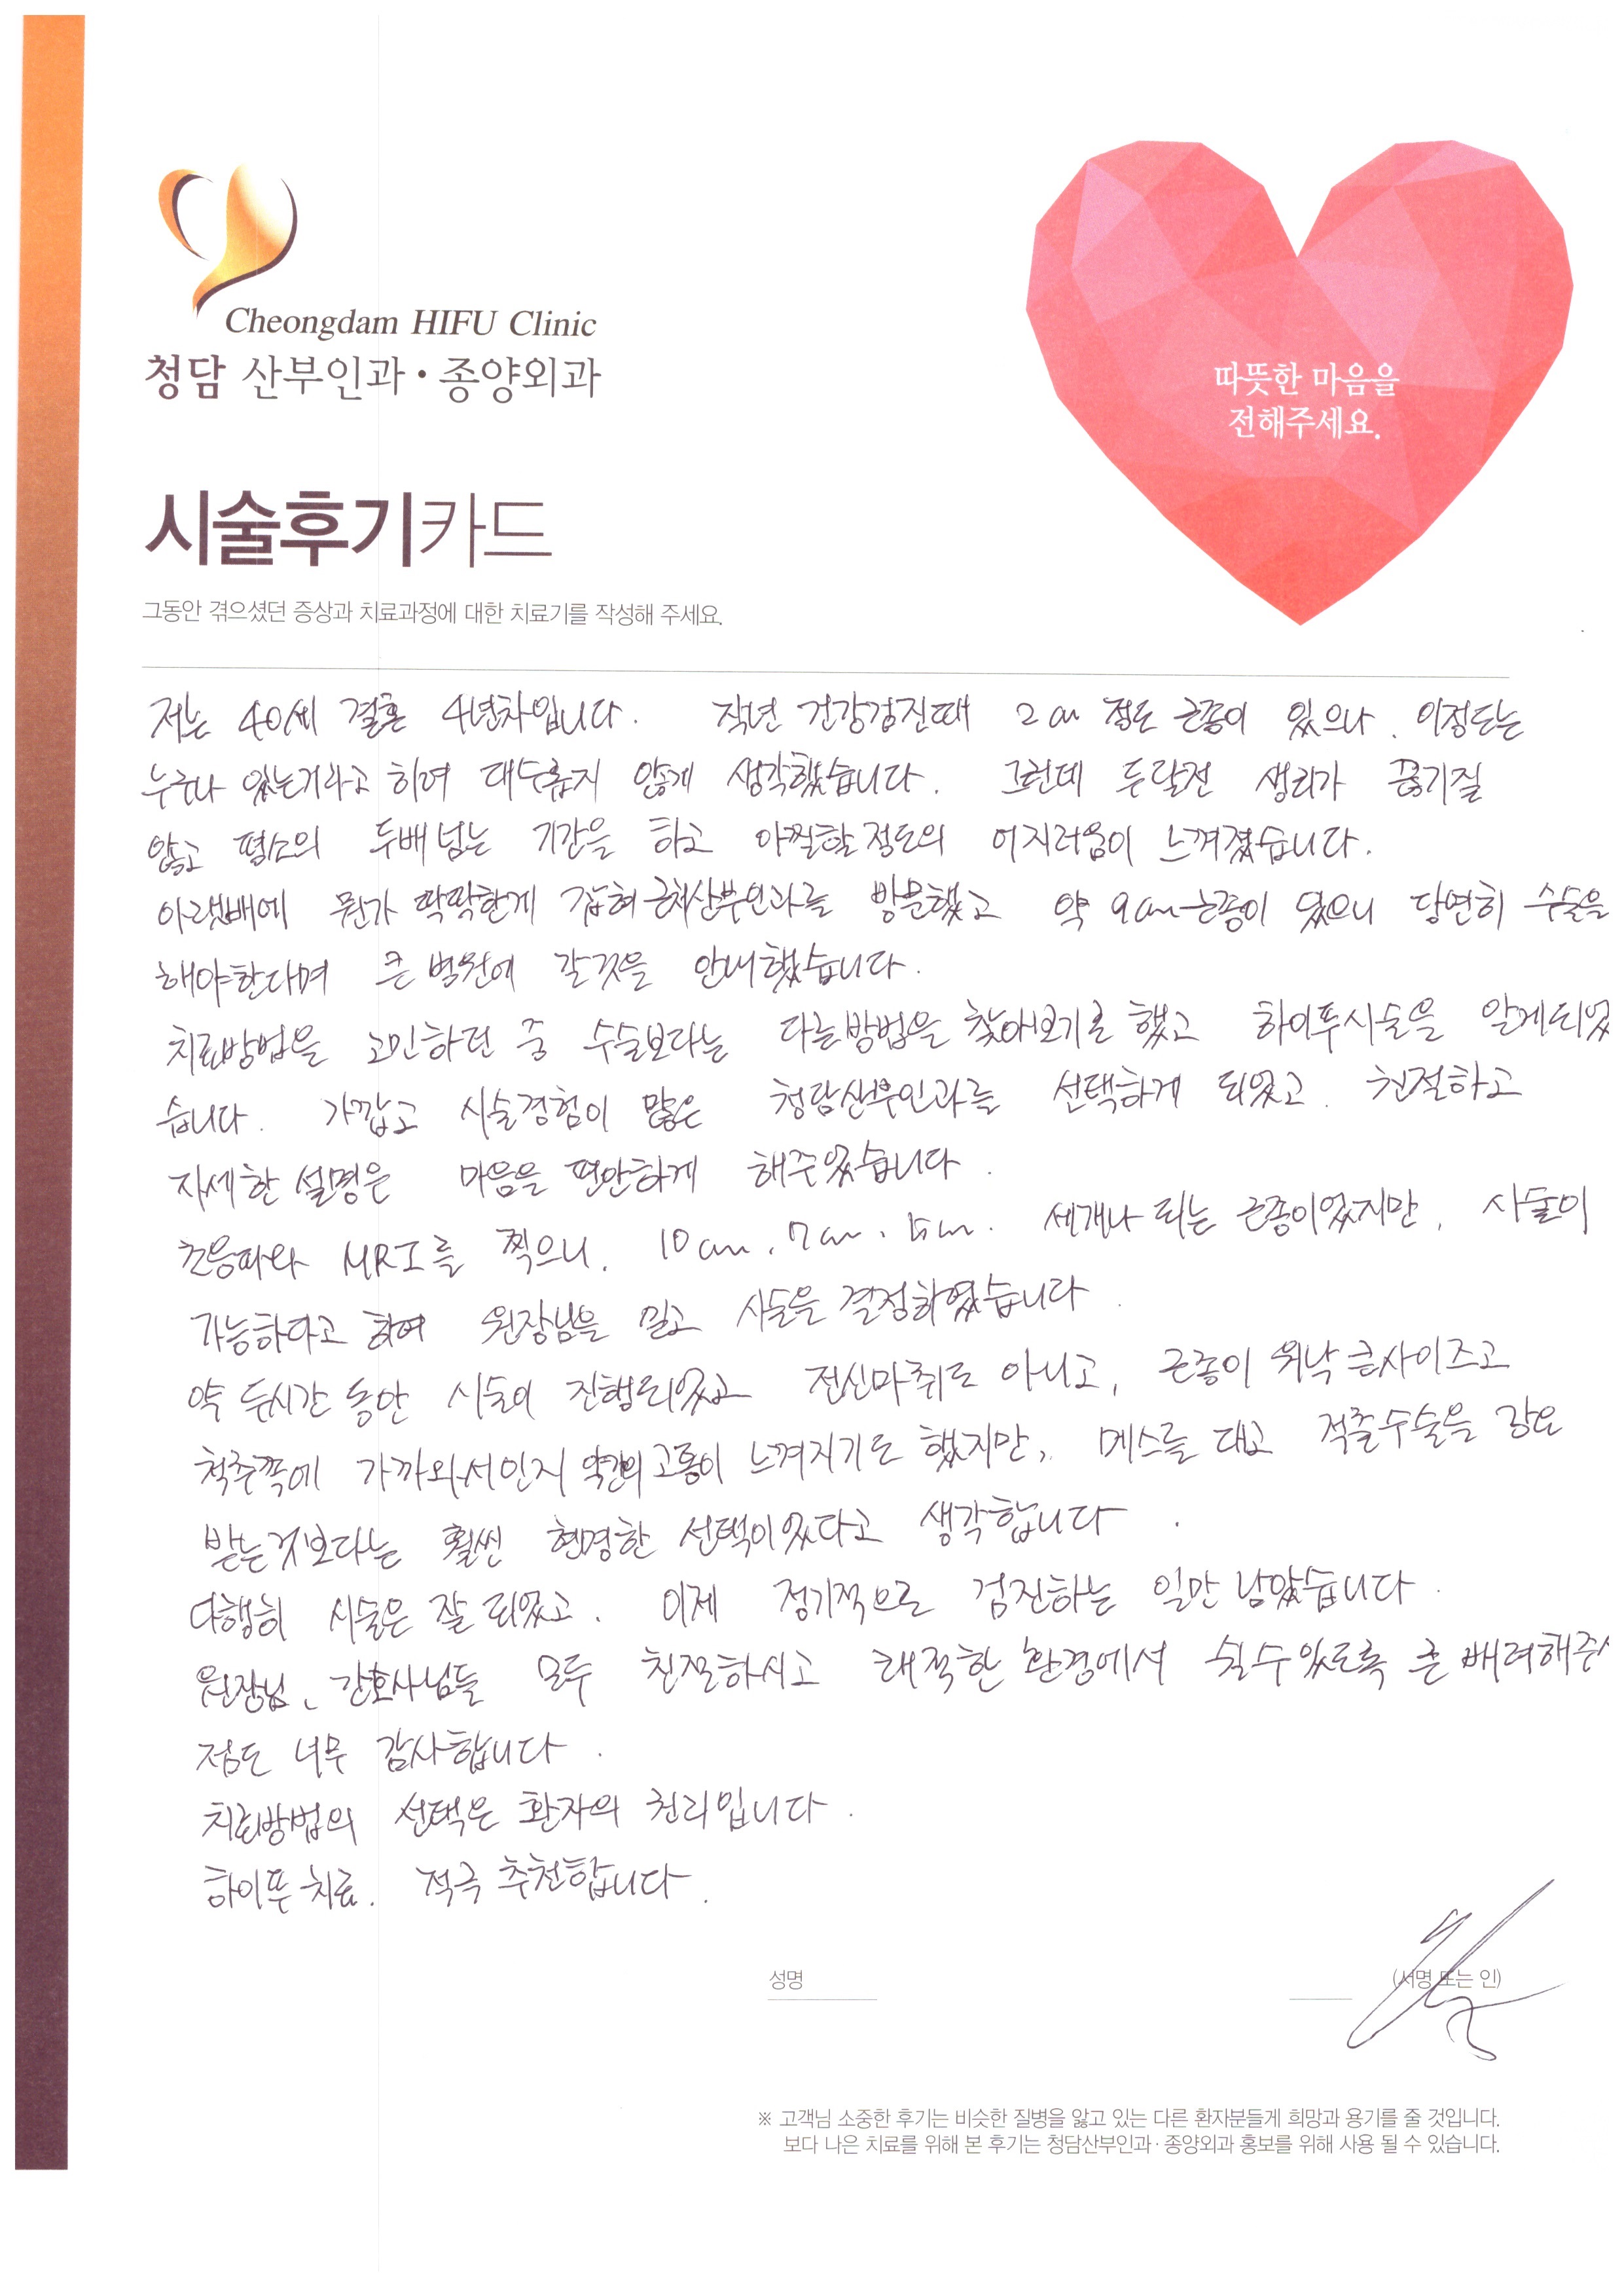 Cheongdam HIFU Clinic
청담 산부인과·종양외과
따뜻한 마음을
전해주세요.
시술후기카드
그동안 겪으셨던 증상과 치료과정에 대한 치료기를 작성해 주세요.
저는 40세 결혼 4년차입니다. 작년 건강검진때 2cm 정도 근종이 있으나, 이정도는
누구나 있는거라고 하여 대수롭지 않게 생각했습니다. 그런데 두달전 생리가 끊기질
않고 평소의 두배 넘는 기간을 하고 아찔할 정도의 어지러움이 느껴졌습니다.
아랫배에 뭔가 딱딱한게 잡혀 근처산부인과를 방문했고 약 9cm 근종이 있으니 당연히 수술을
해야한다며 큰 병원에 갈것을 안내했습니다.
치료방법을 고민하던 중 수술보다는 다른방법을 찾아보기로 했고 하이푸시술을 알게되었
습니다. 가깝고 시술경험이 많은 청담산부인과를 선택하게 되었고. 친절하고
자세한 설명은 마음을 편안하게 해주었습니다.
초음파와 MRI를 찍으니. 10cm, 7cm, 5cm. 세개나 되는 근종이었지만, 시술이
가능하다고 하여 원장님을 믿고 시술을 결정하였습니다.
약 두시간 동안 시술이 진행되었고 전신마취도 아니고, 근종이 워낙 큰사이즈고
척추쪽에 가까워서인지 약간의 고통이 느껴지기도 했지만, 메스를 대고 적출수술을 강요
받는것보다는 훨씬 현명한 선택이었다고 생각합니다.
다행히 시술은 잘 되었고. 이제 정기적으로 검진하는 일만 남았습니다.
원장님, 간호사님들 모두 친절하시고 쾌적한 환경에서 쉴수 있도록 큰 배려해주시
점도 너무 감사합니다.
치료방법의 선택은 환자의 권리입니다.
하이푸 치료. 적극 추천합니다.
성명
(서명 또는 인)
※ 고객님 소중한 후기는 비슷한 질병을 앓고 있는 다른 환자분들게 희망과 용기를 줄 것입니다.
보다 나은 치료를 위해 본 후기는 청담산부인과·종양외과 홍보를 위해 사용 될 수 있습니다.